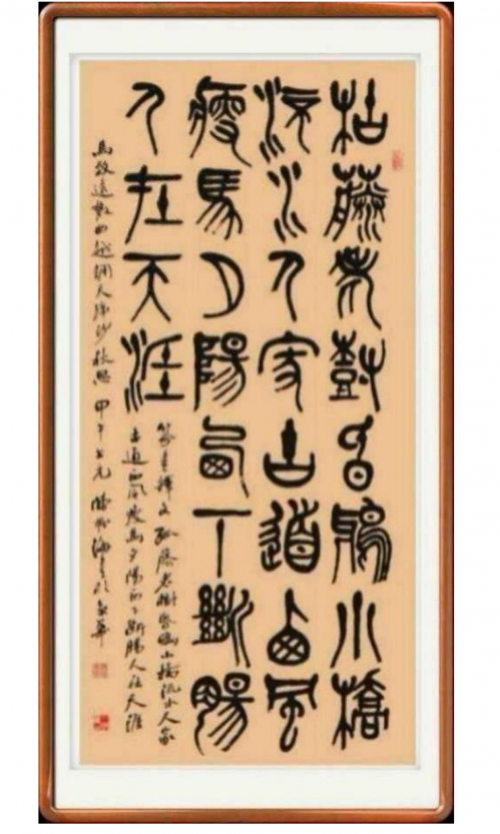 枯藤老樹昏鴉小橋
流水人家古道西風
瘦馬夕陽西下斷腸
人在天涯
篆書釋文 枯藤老樹昏鴉小橋流水人家
古道西風瘦馬夕陽西下斷腸人在天涯
馬致遠散曲越調天淨沙秋思 甲午上元